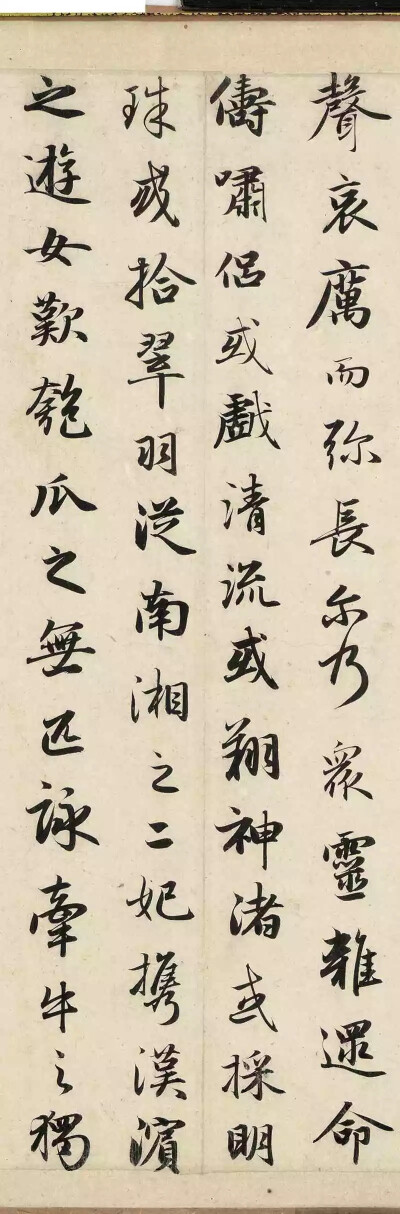 聲哀厲而弥長尒乃眾靈雜遝命
儔嘯侣或戲清流或翔神渚或採明
珠或拾翠羽從南湘之二妃攜漢濱
之遊女歎匏瓜之無匹詠牽牛之獨